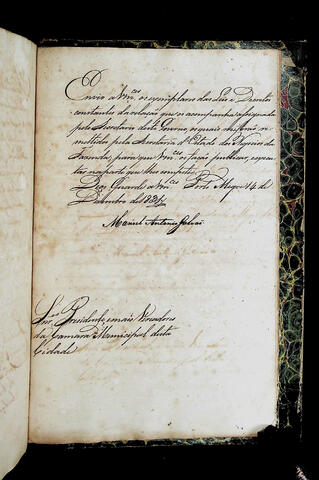 Envio a Vm.ces os exemplares das Leis e Decretos
constantes da relação que os acompanha assignada
pelo Secretario deste Governo os quaes me forão re-
mettidos pela Secretaria d'Estado dos Negocios da
Fazenda, para que Vm.ces os fação publicar, e execu-
tar na parte que lhes compete.
Deos Guarde a Vm.ces Porto Alegre 14 de
Dezembro de
Manoel Antonio Galvão
Snr.es Presidente, e mais Vereadores
da Camara Municipal desta
Cidade